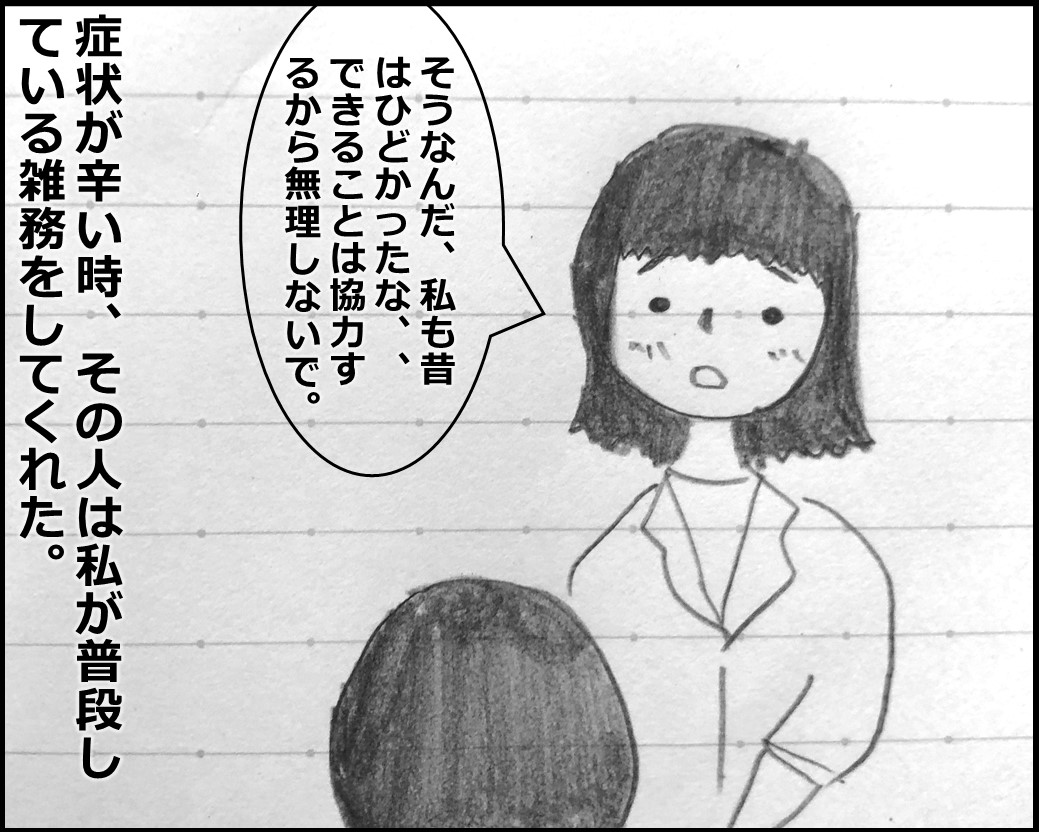 そうなんだ、私も昔
はひどかったな、、
できることは協力す
るから無理しないで。
症状が辛い時、その人は私が普段し
ている雑務をしてくれた。